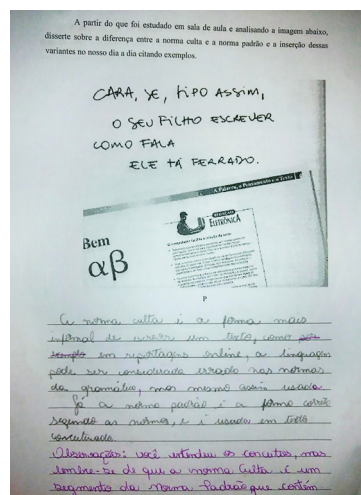 A partir do que foi estudado em sala de aula e analisando a imagem abaixo,
disserte sobre a diferença entre a norma culta e a norma padrão e a inserção dessas
variantes no nosso dia a dia citando exemplos.
CARA, SE, TIPO ASSIM,
O SEU FILHO ESCREVER
COMO FALA
ELE TÁ FERRADO.
A Palavra, o Pensamento e o Texto
Bem
αβ
ELETRÔNICA
P
A norma culta é a forma mais
informal de escrever um texto, como
em reportagens online, a linguagem
pode ser considerada errada nas normas
da gramática, mas mesmo assim usada.
Já a norma padrão é a forma correta
segundo as normas, e é usada em todo
Observações: você entendeu os conceitos, mas
lembre-se de que a norma Culta é um
segmento da norma Padrão que contém